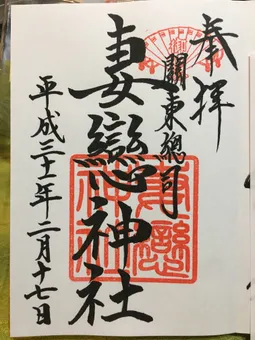 奉拝
關東總司
妻戀神社
平成三十一年二月十七日
妻戀神社